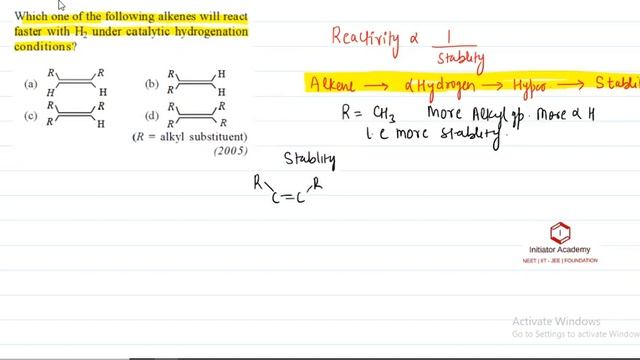 Which one of the following alkenes will react
faster with H2 under catalytic hydrogenation
conditions?
(a) R R H H
(b) R H R H
(c) R R R H
(d) R R R R
(R = alkyl substituent)
(2005)
Reactivity α 1 / Stablity
Alkene → α Hydrogen → Hypco → Stablit
R = CH3 More Alkyl gp. More α H
i.e more stablity.
Stablity
R R
C=C
Initiator Academy
NEET | IIT - JEE | FOUNDATION
Activate Windows
Go to Settings to activate Windows.